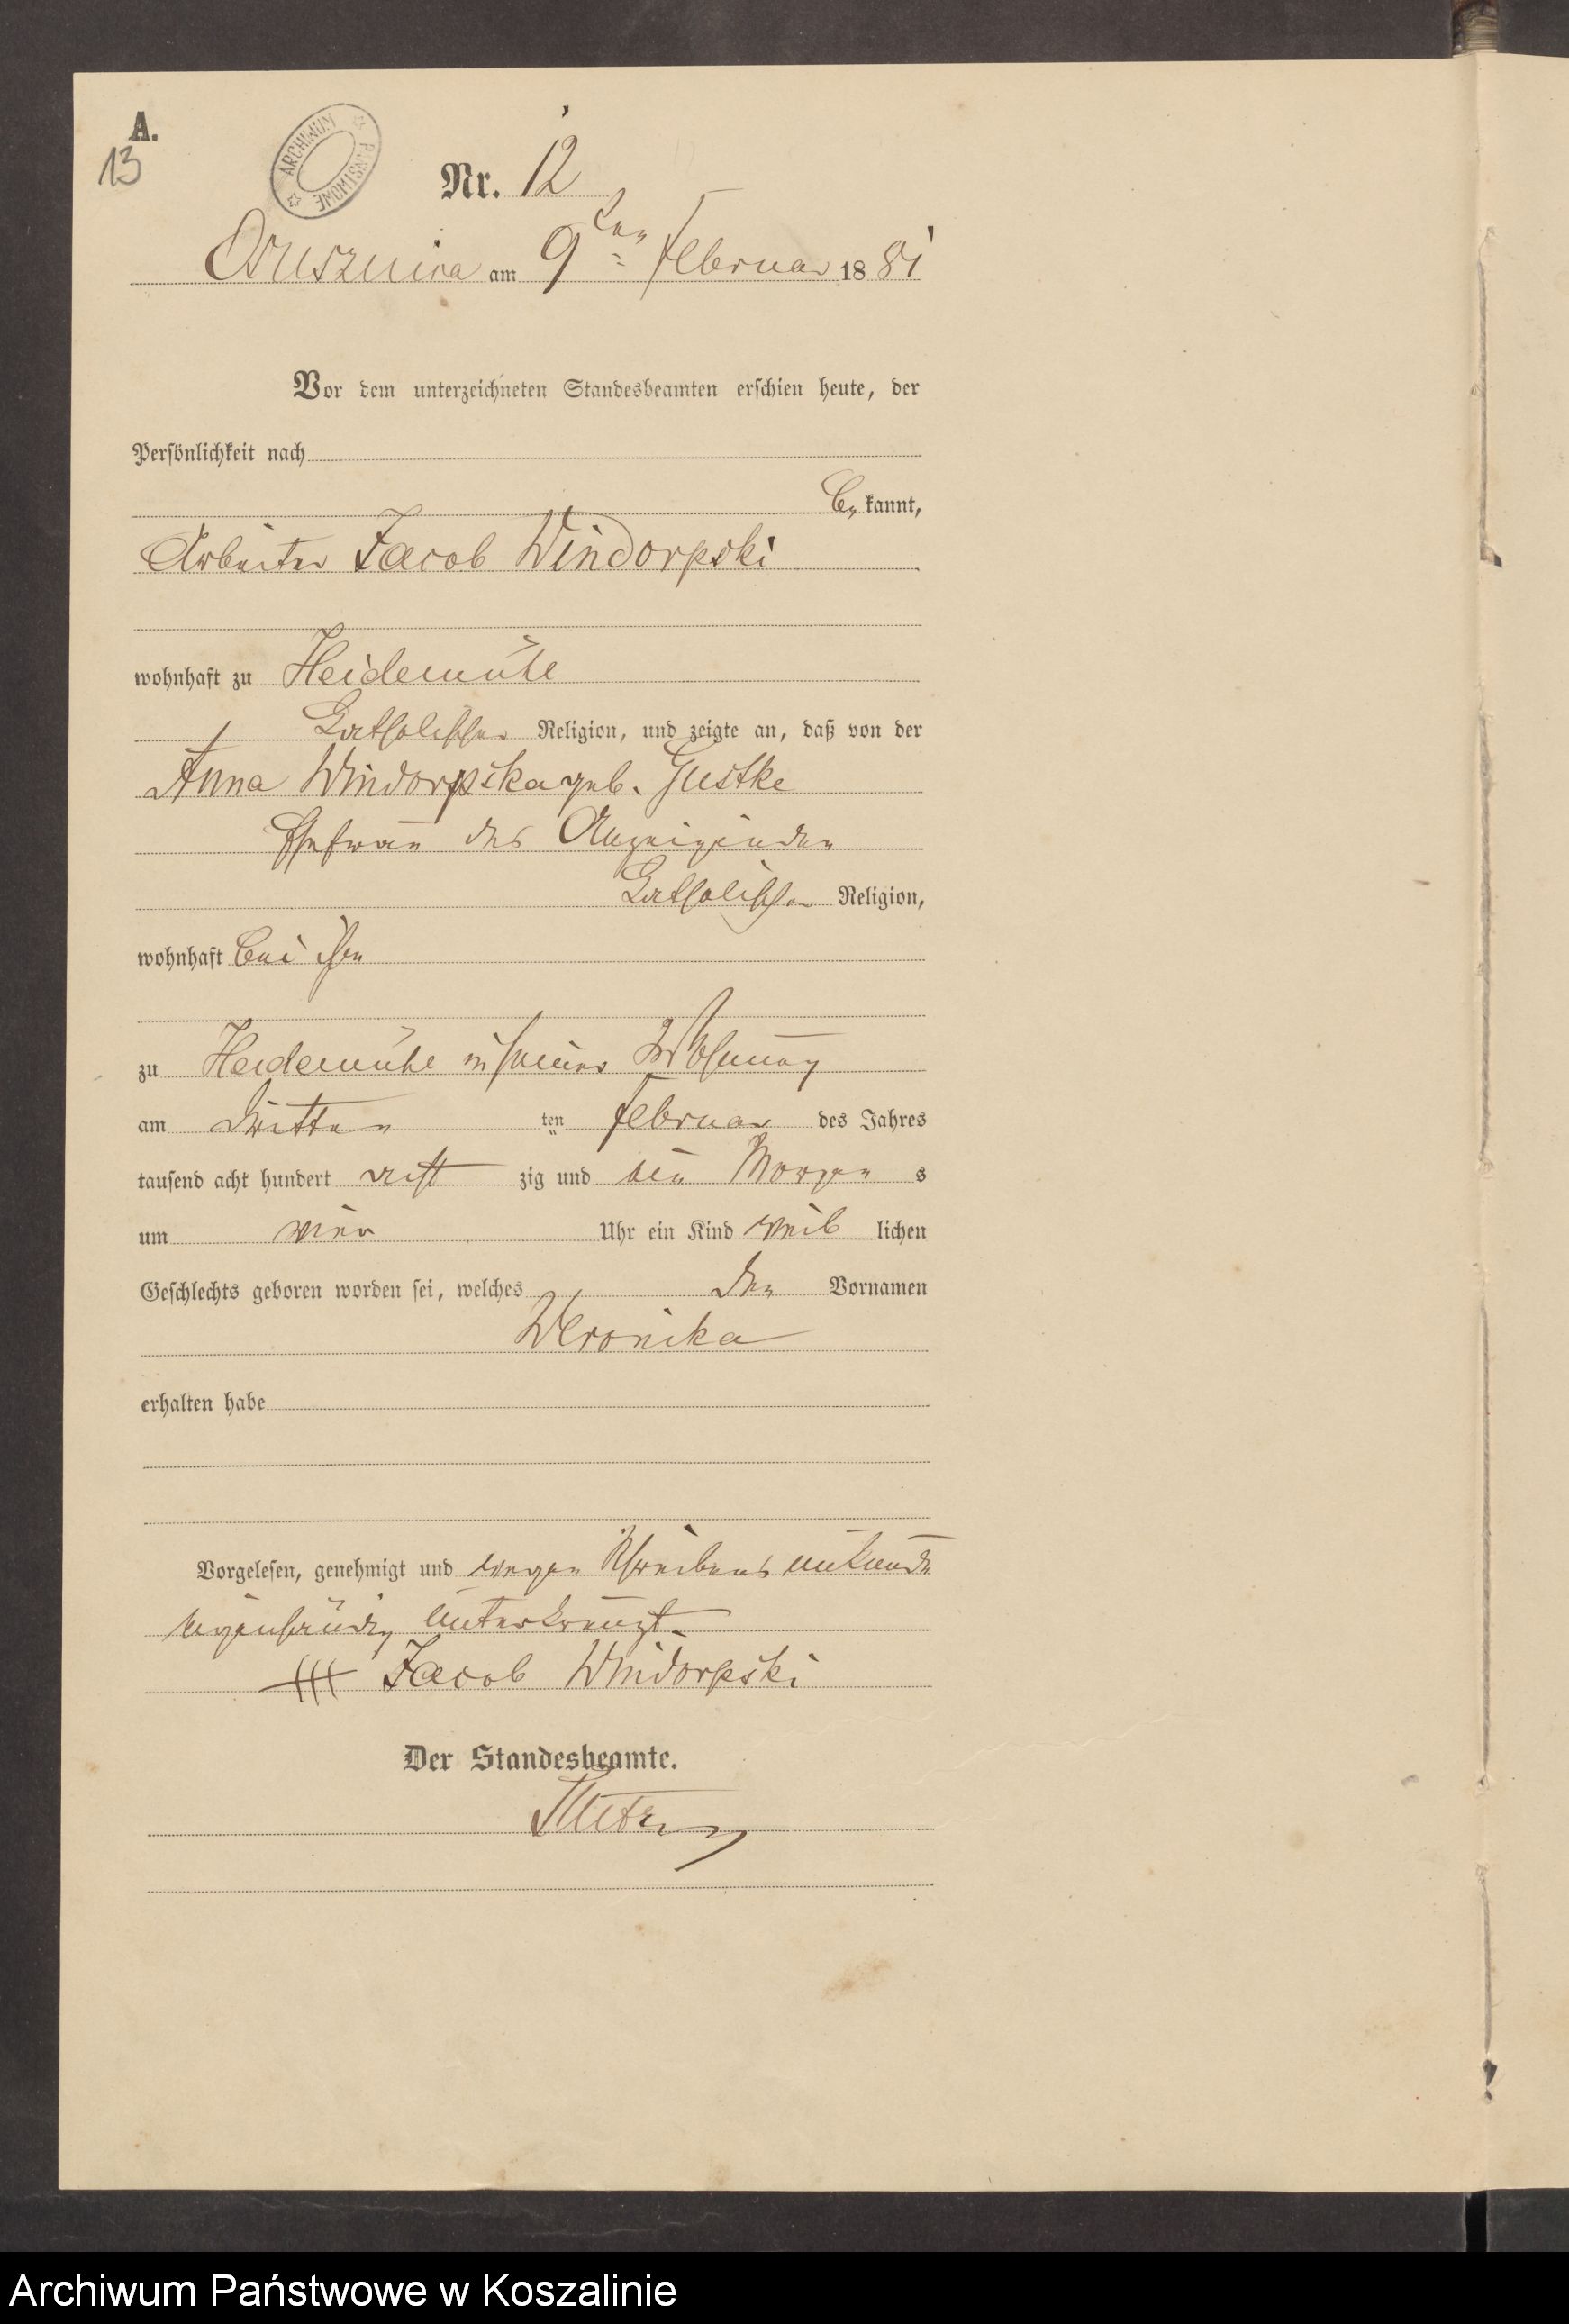 A.
13
ARCHIWUM PAŃSTWOWE
Nr. 12
Ossusznica am 9ten Februar 1881
Vor dem unterzeichneten Standesbeamten erschien heute, der
Persönlichkeit nach
be kannt,
Arbeiter Jacob Windorpski
wohnhaft zu Heidemühl
katholischer Religion, und zeigte an, daß von der
Anna Windorpska geb. Gustke
Ehefrau des Anzeigenden
katholischer Religion,
wohnhaft bei ihm
zu Heidemühl in seiner Wohnung
am dritten ten Februar des Jahres
tausend acht hundert acht zig und ein Morgen s
um vier Uhr ein Kind weib lichen
Geschlechts geboren worden sei, welches den Vornamen
Weronika
erhalten habe
Vorgelesen, genehmigt und wegen Schreibens unkunde
eigenhändig unterkreuzt.
+++ Jacob Windorpski
Der Standesbeamte.
Archiwum Państwowe w Koszalinie